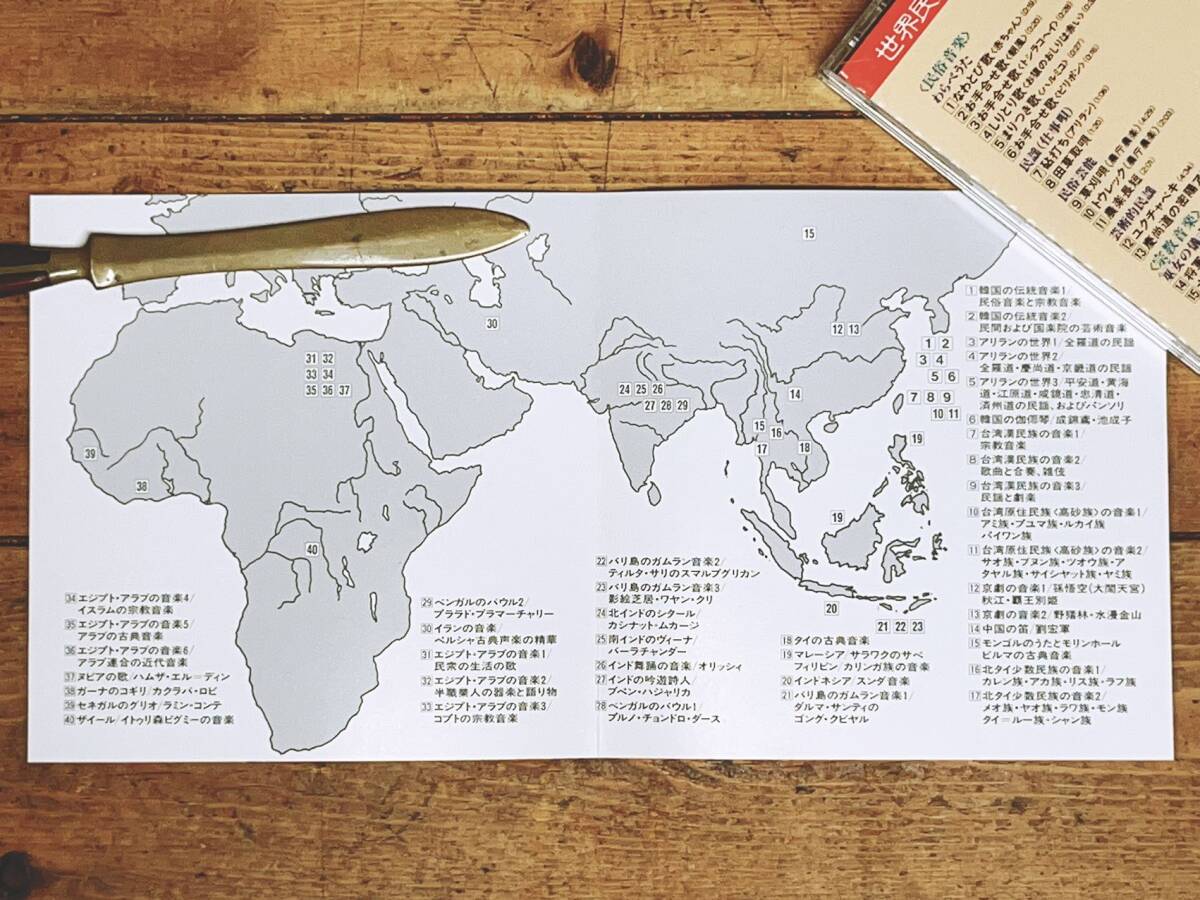 世界民
〈民俗音楽〉
わらべうた
①なわとび歌〈赤ちゃん〉
②お手合せ歌
③お手合せ歌〈トンラコヘイ〉
④しりとり歌〈お猿のおしりは赤い〉
⑤まりつき歌〈ハルミコ〉(0:27)
⑥お手合せ歌〈ピリポン〉
民謡(仕事唄)
⑦砧打ち〈アリラン〉
⑧田草取唄
民俗芸能
⑨草刈唄
⑩トゥレック
⑪農楽長短
芸術的民謡
⑫ユクチャベキ
⑬慶尚道の
〈宗教音楽〉
巫女の
15
30
31 32
33 34
35 36 37
39
38
40
24 25 26
27 28 29
12 13
14
15
16
17
18
19
19
20
21 22 23
1 2
3 4
5 6
7 8 9
10 11
1 韓国の伝統音楽1/
民俗音楽と宗教音楽
2 韓国の伝統音楽2/
民間および国楽院の芸術音楽
3 アリランの世界1/全羅道の民謡
4 アリランの世界2/
全羅道・慶尚道・京畿道の民謡
5 アリランの世界3/平安道・黄海
道・江原道・咸鏡道・忠清道・
済州道の民謡、およびパンソリ
6 韓国の伽倻琴/成錦鳶・池成子
7 台湾漢民族の音楽1/
宗教音楽
8 台湾漢民族の音楽2/
歌曲と合奏、雑伎
9 台湾漢民族の音楽3/
民謡と劇楽
10 台湾原住民族〈高砂族〉の音楽1/
アミ族・プユマ族・ルカイ族
パイワン族
11 台湾原住民族〈高砂族〉の音楽2/
サオ族・ブヌン族・ツオウ族・ア
タヤル族・サイシャット族・ヤミ族
12 京劇の音楽1/孫悟空(大閙天宮)
秋江・覇王別姫
13 京劇の音楽2/野猪林・水漫金山
14 中国の笛/劉宏軍
15 モンゴルのうたとモリンホール
ビルマの古典音楽
16 北タイ少数民族の音楽1/
カレン族・アカ族・リス族・ラフ族
17 北タイ少数民族の音楽2/
メオ族・ヤオ族・ラワ族・モン族
タイ＝ルー族・シャン族
18 タイの古典音楽
19 マレーシア/サラワクのサペ
フィリピン/カリンガ族の音楽
20 インドネシア/スンダ音楽
21 バリ島のガムラン音楽1/
ダルマ・サンティの
ゴング・クビヤル
22 バリ島のガムラン音楽2/
ティルタ・サリのスマルプグリカン
23 バリ島のガムラン音楽3/
影絵芝居・ワヤン・クリ
24 北インドのシタール/
カシナット・ムカージ
25 南インドのヴィーナ/
バーラチャンダー
26 インド舞踊の音楽/オリッシィ
27 インドの吟遊詩人/
ブペン・ハジャリカ
28 ベンガルのバウル1/
プルノ・チョンドロ・ダース
29 ベンガルのバウル2/
プララド・ブラマーチャリー
30 イランの音楽/
ペルシャ古典声楽の精華
31 エジプト・アラブの音楽1/
民衆の生活の歌
32 エジプト・アラブの音楽2/
半職業人の器楽と語り物
33 エジプト・アラブの音楽3/
コプトの宗教音楽
34 エジプト・アラブの音楽4/
イスラムの宗教音楽
35 エジプト・アラブの音楽5/
アラブの古典音楽
36 エジプト・アラブの音楽6/
アラブ連合の近代音楽
37 ヌビアの歌/ハムザ・エル＝ディン
38 ガーナのコギリ/カクラバ・ロビ
39 セネガルのグリオ/ラミン・コンテ
40 ザイール/イトゥリ森ピグミーの音楽